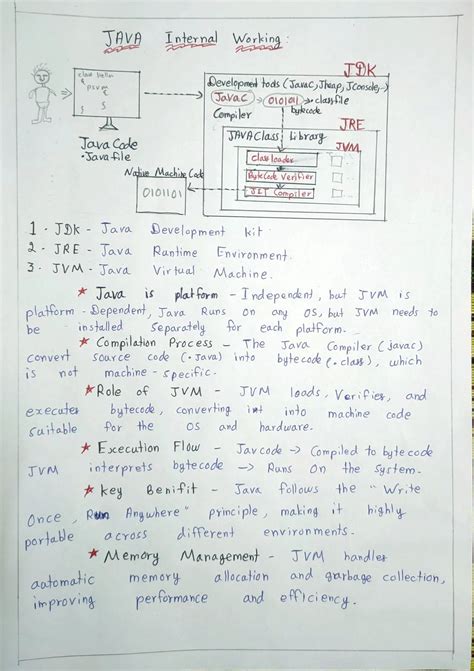 JAVA Internal Working:
JDK
class Hello
{
psvm
}
Development tools (JavaC, Jheap, JConsole..)
JavaC → 010101 → classfile
Compiler
bytecode
JRE
JAVA Class library
JVM
Class loader
ByteCode Verifier
JIT Compiler
Java Code
.Java file
Native Machine Code
0101101
1. JDK - Java Development kit
2. JRE - Java Runtime Environment.
3. JVM - Java Virtual Machine.
★ Java is platform - Independent, but JVM is
platform - Dependent, Java Runs on any OS, but JVM needs to
be installed separately for each platform.
★ Compilation Process - The Java Compiler (javac)
convert source code (.java) into bytecode (.class), which
is not machine - specific.
★ Role of JVM - JVM loads, Verifies, and
executes bytecode, converting it into machine code
suitable for the OS and hardware.
★ Execution Flow - Javcode → Compiled to bytecode
JVM interprets bytecode → Runs On the System.
★ Key Benifit - Java follows the "Write
Once, Run Anywhere" principle, making it highly
portable across different environments.
★ Memory Management - JVM handles
automatic memory allocation and garbage collection,
improving performance and efficiency.